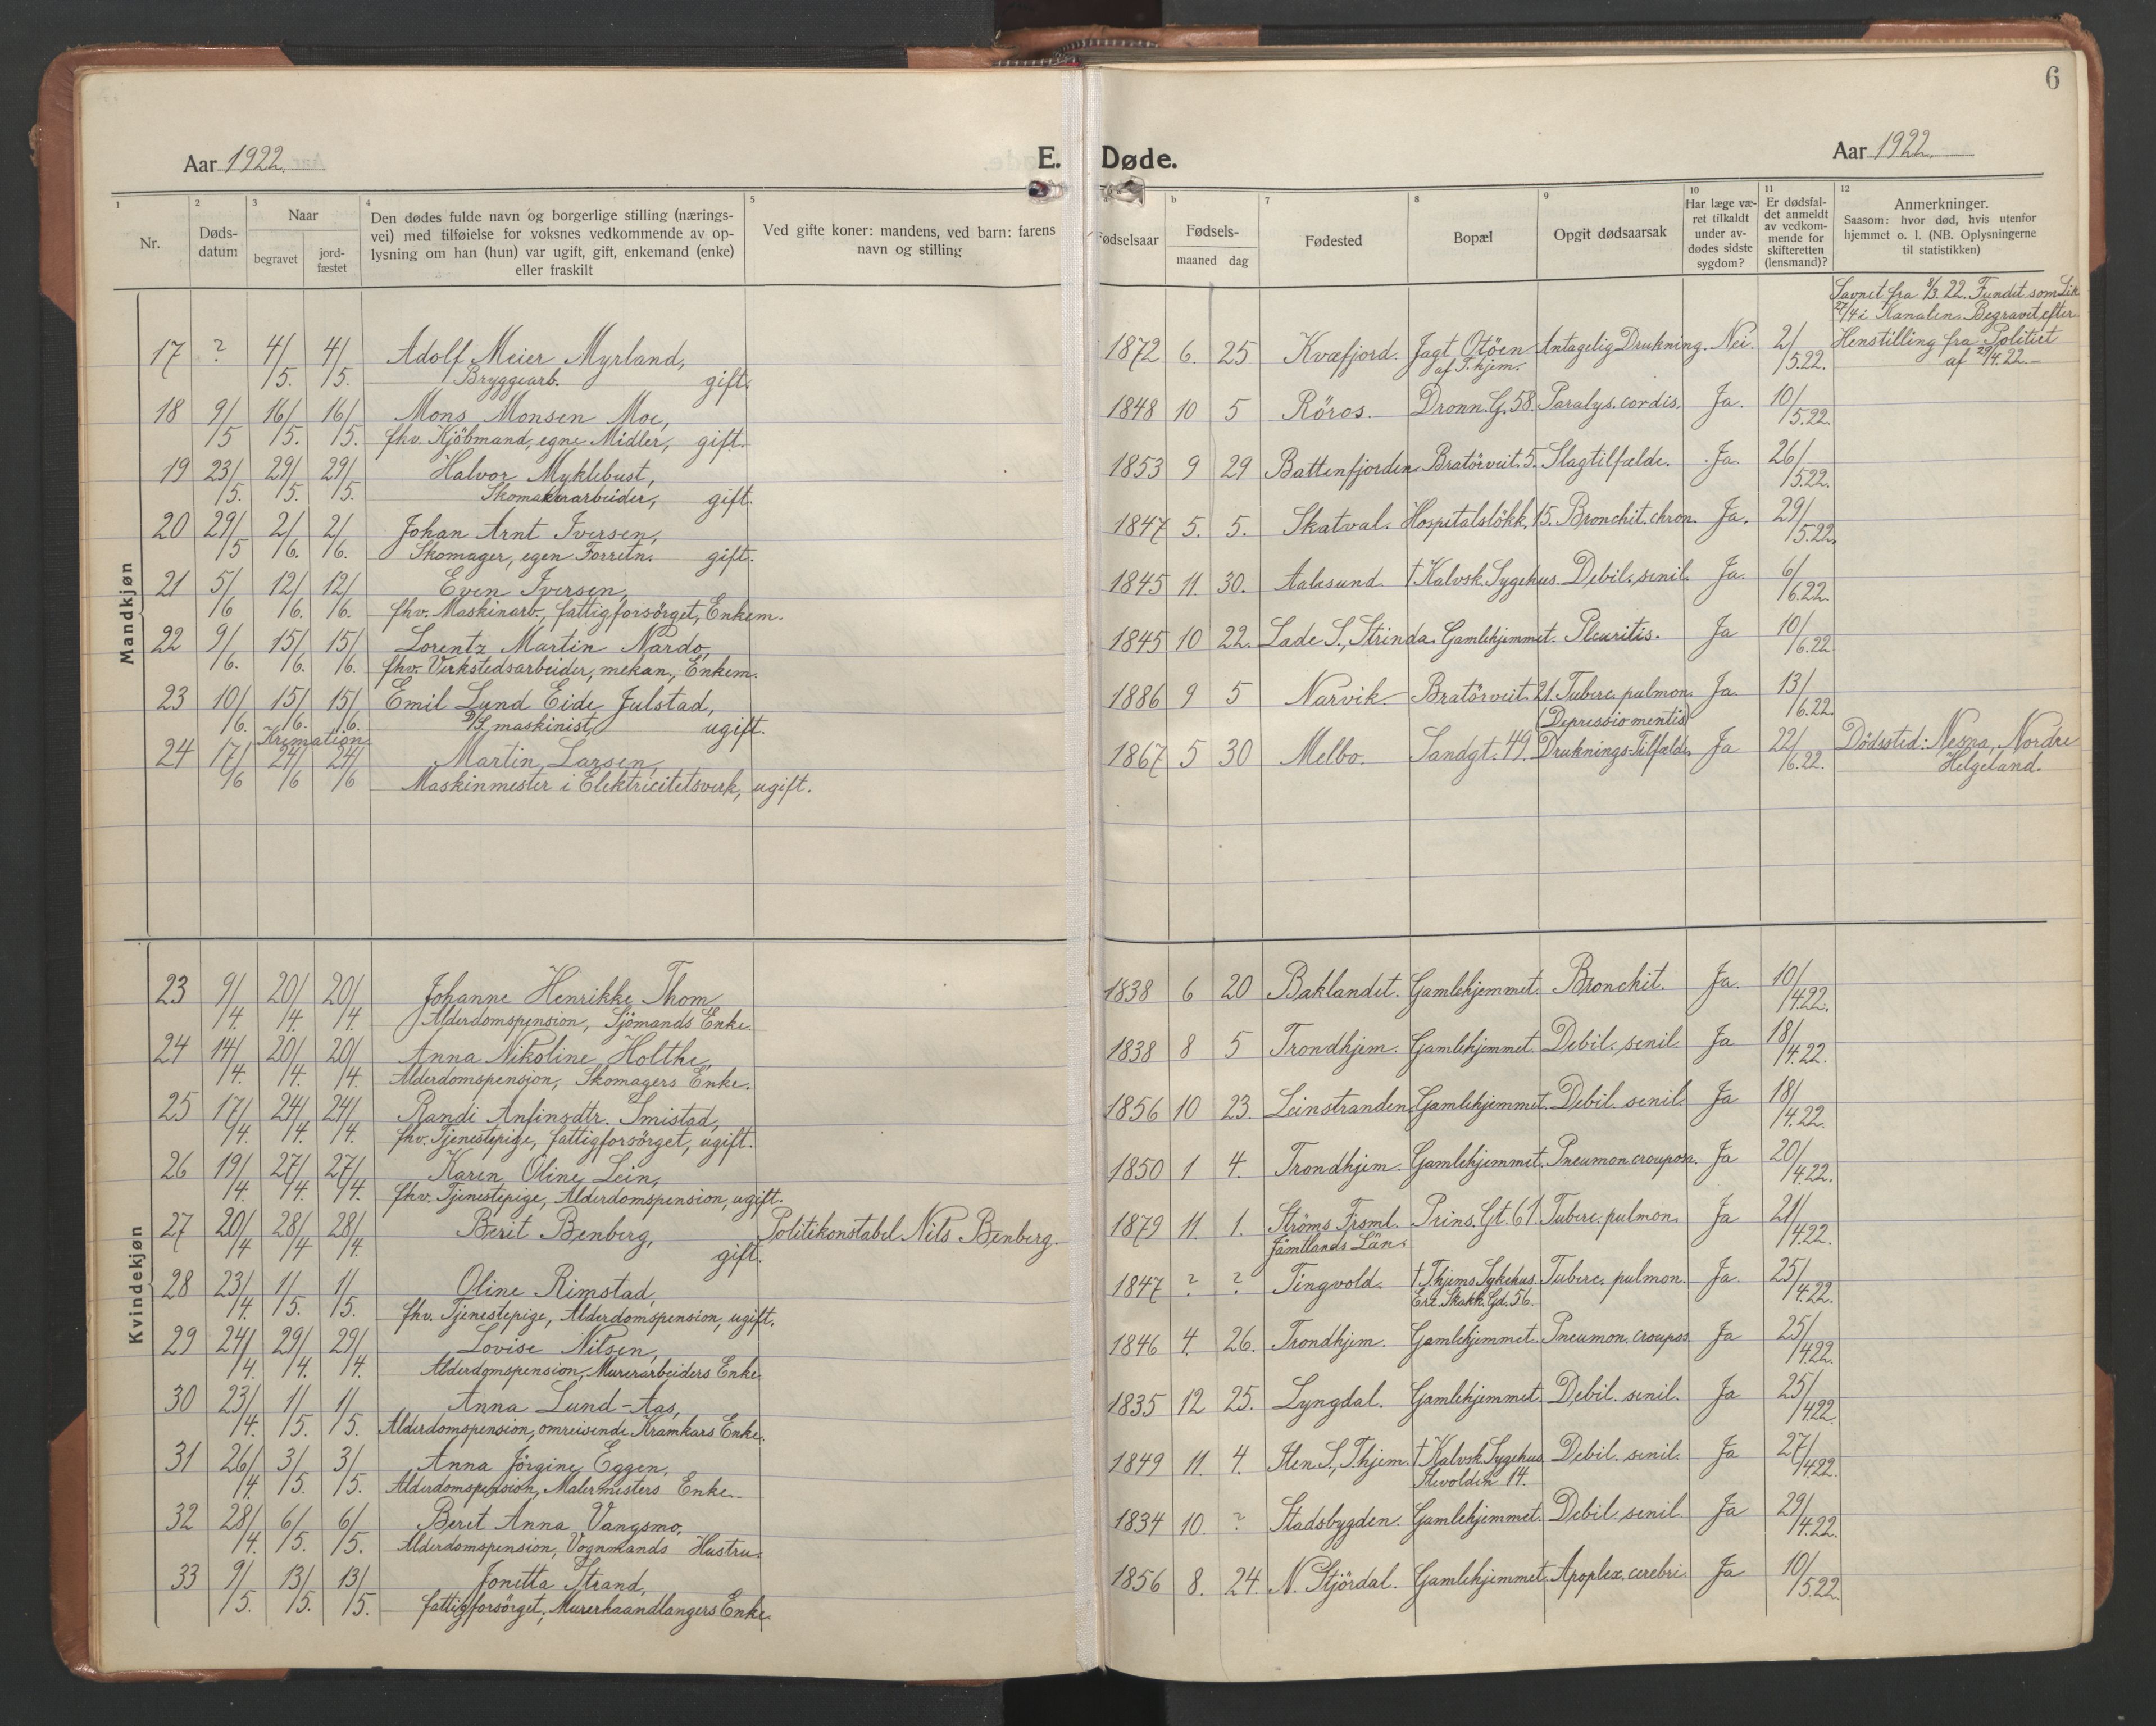 6
Aar 1922. E. Døde. Aar 1922.
1 Nr.
2 Døds-datum
3 Naar begravet jord-fæstet
4 Den dødes fulde navn og borgerlige stilling (nærings-
vei) med tilføielse for voksnes vedkommende av op-
lysning om han (hun) var ugift, gift, enkemand (enke)
eller fraskilt
5 Ved gifte koner: mandens, ved barn: farens
navn og stilling
Fødselsaar
b Fødsels- maaned dag
7 Fødested
8 Bopæl
9 Opgit dødsaarsak
10 Har læge væ-
ret tilkaldt
under av-
dødes sidste
sygdom?
11 Er dødsfal-
det anmeldt
av vedkom-
mende for
skifteretten
(lensmand)?
12 Anmerkninger.
Saasom: hvor død, hvis utenfor
hjemmet o. l. (NB. Oplysningerne
til statistikken)
Mandkjøn
Savnet fra 8/3. 22. Fundet som Lik
27/4 i Kanalen. Begravet efter
17 ? 4/5. 4/5. Adolf Meier Myrland, 1872 6. 25 Kvæfjord. Jagt Otöen Antagelig Drukning. Nei. 2/5.22. Henstilling fra Politiet
Bryggearb. gift. af T.hjem. af 29/4.22.
18 9/5 16/5. 16/5. Mons Monsen Moe, 1848 10 5 Röros. Dronn. G. 58. Paralys. cordis. Ja. 10/5.22.
fhv. Kjöbmand, egne Midler, gift.
19 23/5. 29/5. 29/5. Halvor Myklebust, 1853 9 29 Battenfjorden. Bratörveit. 5. Slagtilfælde. Ja. 26/5.22.
Skomakerarbeider, gift.
20 29/5 2/6. 2/6. Johan Arnt Iversen, 1847 5. 5. Skatval. Hospitalslökk. 15. Bronchit. chron. Ja. 29/5.22.
Skomager, egen Forretn. gift.
21 5/6 12/6. 12/6. Even Iversen, 1845 11. 30. Aalesund. † Kalvsk. Sygehus. Debil. senil. Ja. 6/6.22.
fhv. Maskinarb., fattigforsörget, Enkem.
22 9/6. 15/6. 15/6. Lorentz Martin Nardo, 1845 10 22. Lade S., Strinda. Gamlehjemmet. Pleuritis. Ja 10/6.22
fhv. Verkstedsarbeider, mekan., Enkem.
23 10/6. 15/6. 15/6. Emil Lund Eide Julstad, 1886 9 5 Narvik. Bratörveit. 21. Tuberc. pulmon. Ja. 13/6.22.
D/S maskinist, ugift.
Kremation. (Depressio mentis)
24 17/6 24/6 24/6 Martin Larsen, 1867 5 30 Melbo. Sandgt. 49. Druknings-Tilfælde. Ja 22/6.22. Dödssted: Nesna, Nordre
Maskinmester i Elektricitetsverk, ugift. Helgeland.
Kvindekjøn
23 9/4. 20/4. 20/4. Johanne Henrikke Thom, 1838 6 20 Baklandet. Gamlehjemmet. Bronchit. Ja. 10/4.22.
Alderdomspension, Sjömands Enke.
24 14/4. 20/4. 20/4. Anna Nikoline Holthe, 1838 8 5 Trondhjem. Gamlehjemmet. Debil. senil. Ja 18/4.22.
Alderdomspension, Skomagers Enke.
25 17/4. 24/4. 24/4. Randi Anfinsdtr. Smistad, 1856 10 23. Leinstranden. Gamlehjemmet. Debil. senil. Ja 18/4.22.
fhv. Tjenestepige, fattigforsörget, ugift.
26 19/4. 27/4. 27/4. Karen Oline Lein, 1850 1 4. Trondhjem. Gamlehjemmet. Pneumon. crouposa. Ja 20/4.22.
fhv. Tjenestepige, Alderdomspension, ugift.
27 20/4 28/4 28/4. Berit Benberg, Politikonstabel Nils Benberg. 1879 11. 1. Ströms Frsml. Prins. Gt. 61. Tuberc. pulmon. Ja 21/4.22.
gift. Jämtlands Län.
28 23/4. 1/5. 1/5. Oline Rimstad, 1847 ? ? Tingvold. † T.hjems Sykehus. Tuberc. pulmon. Ja. 25/4.22.
fhv. Tjenestepige, Alderdomspension, ugift. Erl. Skakk. Gd. 56.
29 24/4. 29/4. 29/4. Lovise Nilsen, 1846 4. 26. Trondhjem. Gamlehjemmet. Pneumon. croupos. Ja 25/4.22.
Alderdomspension, Murerarbeiders Enke.
30 23/4. 1/5. 1/5. Anna Lund-Aas, 1835 12 25. Lyngdal. Gamlehjemmet. Debil. senil. Ja 25/4.22.
Alderdomspension, omreisende Kramkars Enke.
31 26/4. 3/5. 3/5. Anna Jörgine Eggen, 1849 11. 4. Ilen S., Thjem. † Kalvsk. Sygehus. Debil. senil. Ja 27/4.22.
Alderdomspension, Malermesters Enke. Ilevolden 14.
32 28/4. 6/5. 6/5. Beret Anna Vangsmo, 1834 10. ? Stadsbygden. Gamlehjemmet. Debil. senil. Ja 29/4.22.
Alderdomspension, Vognmands Hustru.
33 9/5. 13/5. 13/5. Jonetta Strand, 1856 8. 24. N. Stjördal. Gamlehjemmet. Apoplex. cerebri. Ja 10/5.22.
fattigforsörget, Murerhaandlangers Enke.